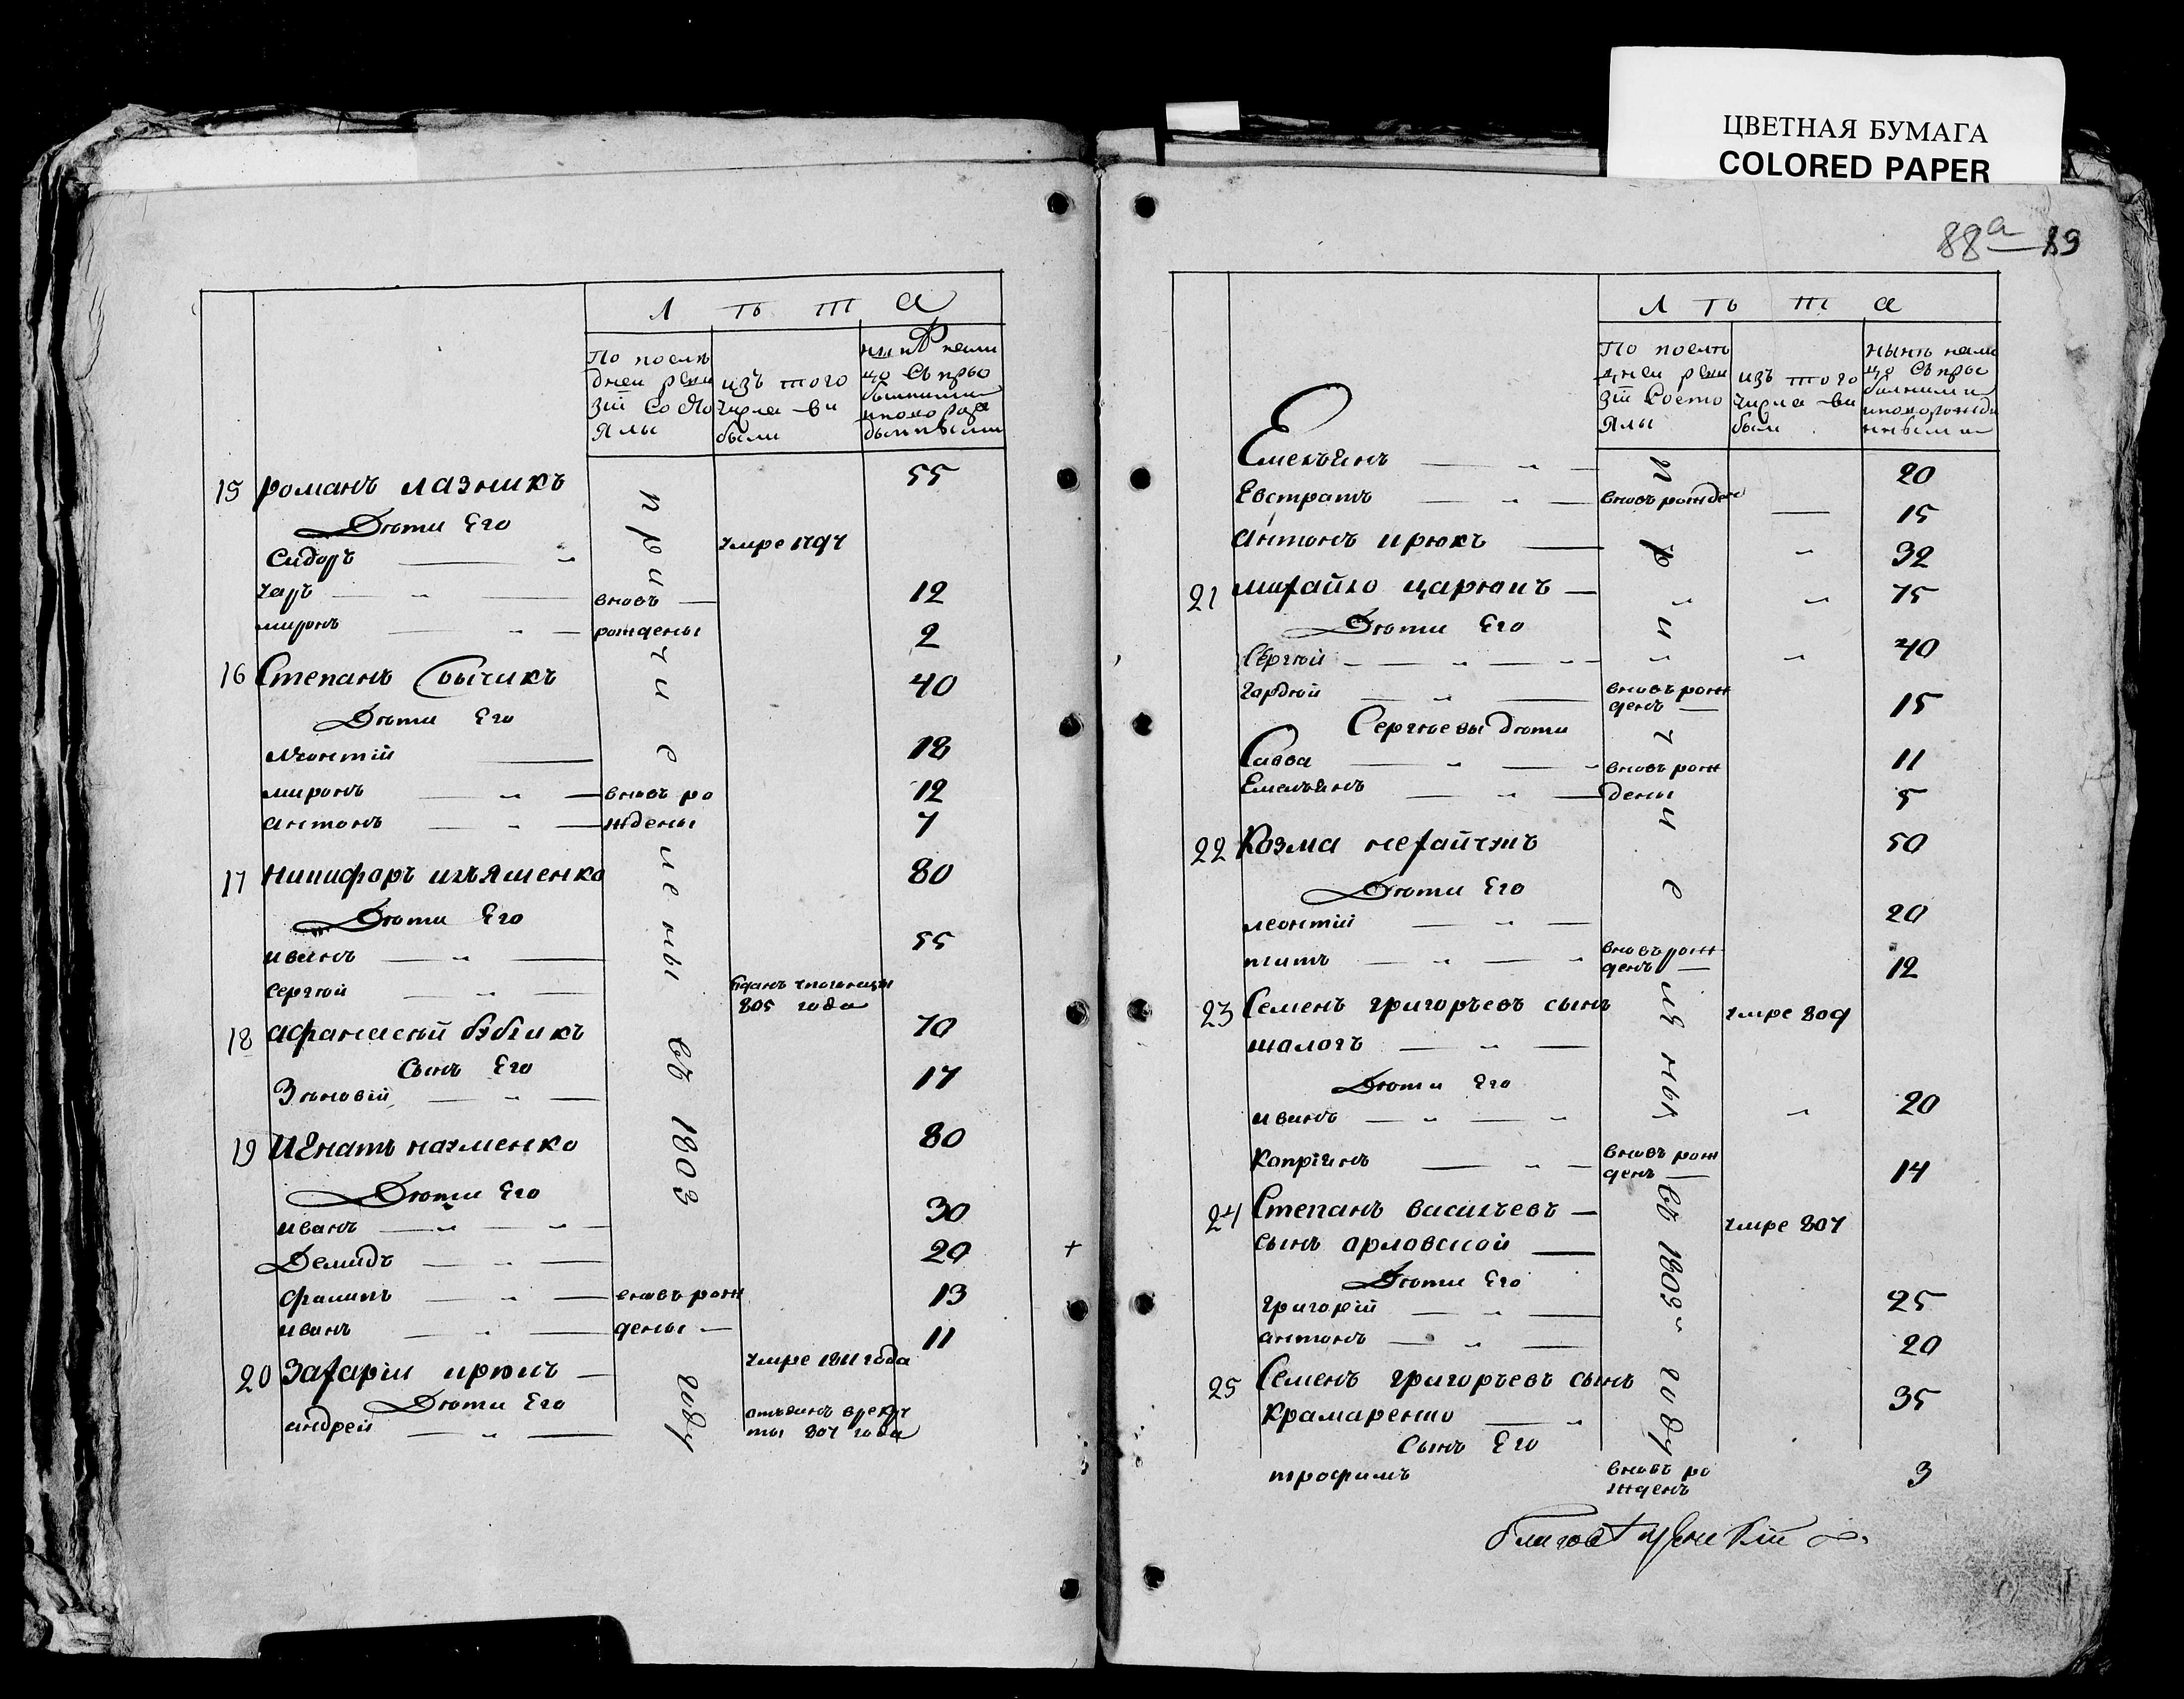 ЦВЕТНАЯ БУМАГА
COLORED PAPER
88а 89
Л ѣ т а
По послѣ
дней реви
зіи состо
Ялы
изъ того
числа -вы
были
нынѣ нали
цо съ при
былыми
15 романъ лазникъ 55
Дѣти Его
Сидоръ — умре 1797
вновь — 12
миронъ — рождены 2
16 Степанъ Сычикъ 40
Дѣти Его
леонтій — 18
миронъ — вновь ро 12
антонъ — ждены 7
17 никифоръ ильяшенко 80
Дѣти Его
иванъ — 55
сергѣй —
805 года
18 афанасий бѣбикъ 70
Сынъ Его
Зѣновій — 17
19 Игнатъ науменко 80
Дѣти Его
иванъ — 30
Демидъ — 20
филипъ — вновь рож 13
иванъ — дены — 11
20 Захарій — умре 1811 года
Дѣти Его
андрей — отъданъ врекру
ты 807 года
причислены въ 1803 году
Л ѣ т а
По послѣ
дней реви
зіи состо
Ялы
изъ того
числа -вы
были
нынѣ нали
цо съ при
былыми и
новорожде
нными
Емельянъ — 20
Евстратъ — вновь рожден — 15
антонъ — 32
21 михайло — 75
Дѣти Его
Сергѣй — 40
гордѣй — вновь рож
денъ — 15
Сергѣевы дѣти
Савва — вновь рож 11
Емельянъ — дены 5
22 Козма нехай 50
Дѣти Его
леонтій — 20
титъ — вновь рож
денъ — 12
23 Семенъ григорьевъ сынъ умре 809
шалогъ —
Дѣти Его
иванъ — 20
Капріянъ — вновь рож
денъ — 14
24 Степанъ васильевъ — умре 807
сынъ арловской —
Дѣти Его
григорій — 25
антонъ — 20
25 Семенъ григорьевъ сынъ 35
Крамаренко —
Сынъ Его
трофимъ вновь ро 3
жденъ
причислены въ 1803 году